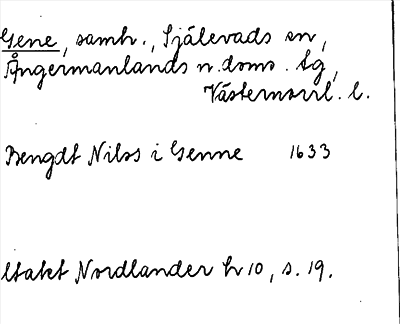 Gene, samh., Själevads sn,
Ångermanlands n. doms. tg,
Västernorrl. l.
Bengdt Nilss i Genne 1633
Utakt Nordlander h 10, s. 19.